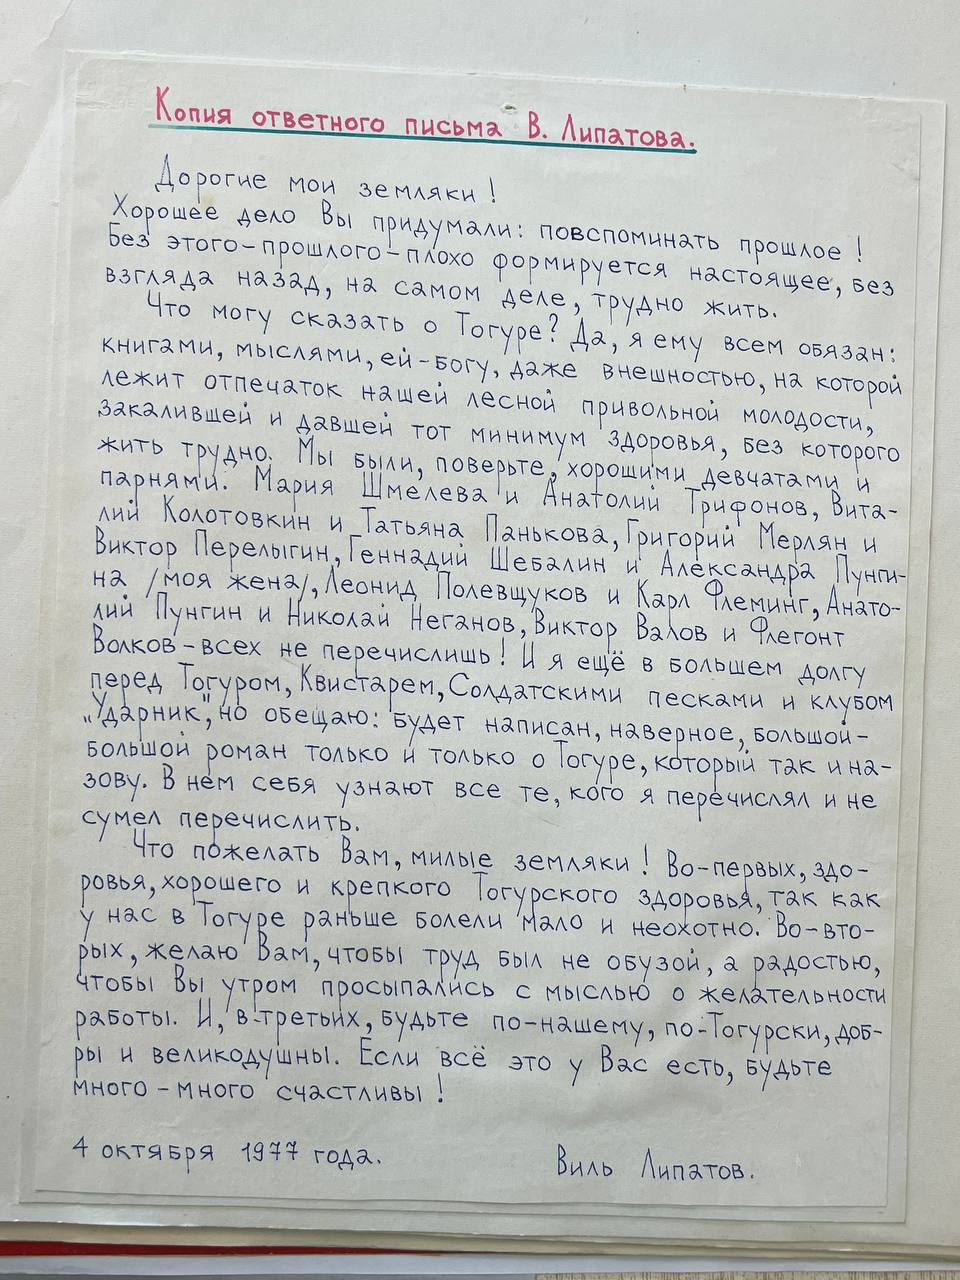 Копия ответного письма В. Липатова.
Дорогие мои земляки!
Хорошее дело Вы придумали: повспоминать прошлое!
Без этого-прошлого-плохо формируется настоящее, без
взгляда назад, на самом деле, трудно жить.
Что могу сказать о Тогуре? Да, я ему всем обязан:
книгами, мыслями, ей-богу, даже внешностью, на которой
лежит отпечаток нашей лесной привольной молодости,
закалившей и давшей тот минимум здоровья, без которого
жить трудно. Мы были, поверьте, хорошими девчатами и
парнями: Мария Шмелева и Анатолий Трифонов, Вита-
лий Колотовкин и Татьяна Панькова, Григорий Мерлян и
Виктор Перелыгин, Геннадий Шебалин и Александра Пунги-
на /моя жена/, Леонид Полевщуков и Карл Флеминг, Анато-
лий Пунгин и Николай Неганов, Виктор Валов и Флегонт
Волков-всех не перечислишь! И я ещё в большем долгу
перед Тогуром, Квистарем, Солдатскими песками и клубом
„Ударник", но обещаю: будет написан, наверное, большой-
большой роман только и только о Тогуре, который так и на-
зову. В нем себя узнают все те, кого я перечислял и не
сумел перечислить.
Что пожелать Вам, милые земляки! Во-первых, здо-
ровья, хорошего и крепкого Тогурского здоровья, так как
у нас в Тогуре раньше болели мало и неохотно. Во-вто-
рых, желаю Вам, чтобы труд был не обузой, а радостью,
чтобы Вы утром просыпались с мыслью о желательности
работы. И, в-третьих, будьте по-нашему, по-Тогурски, доб-
ры и великодушны. Если всё это у Вас есть, будьте
много-много счастливы!
4 октября 1977 года. Виль Липатов.